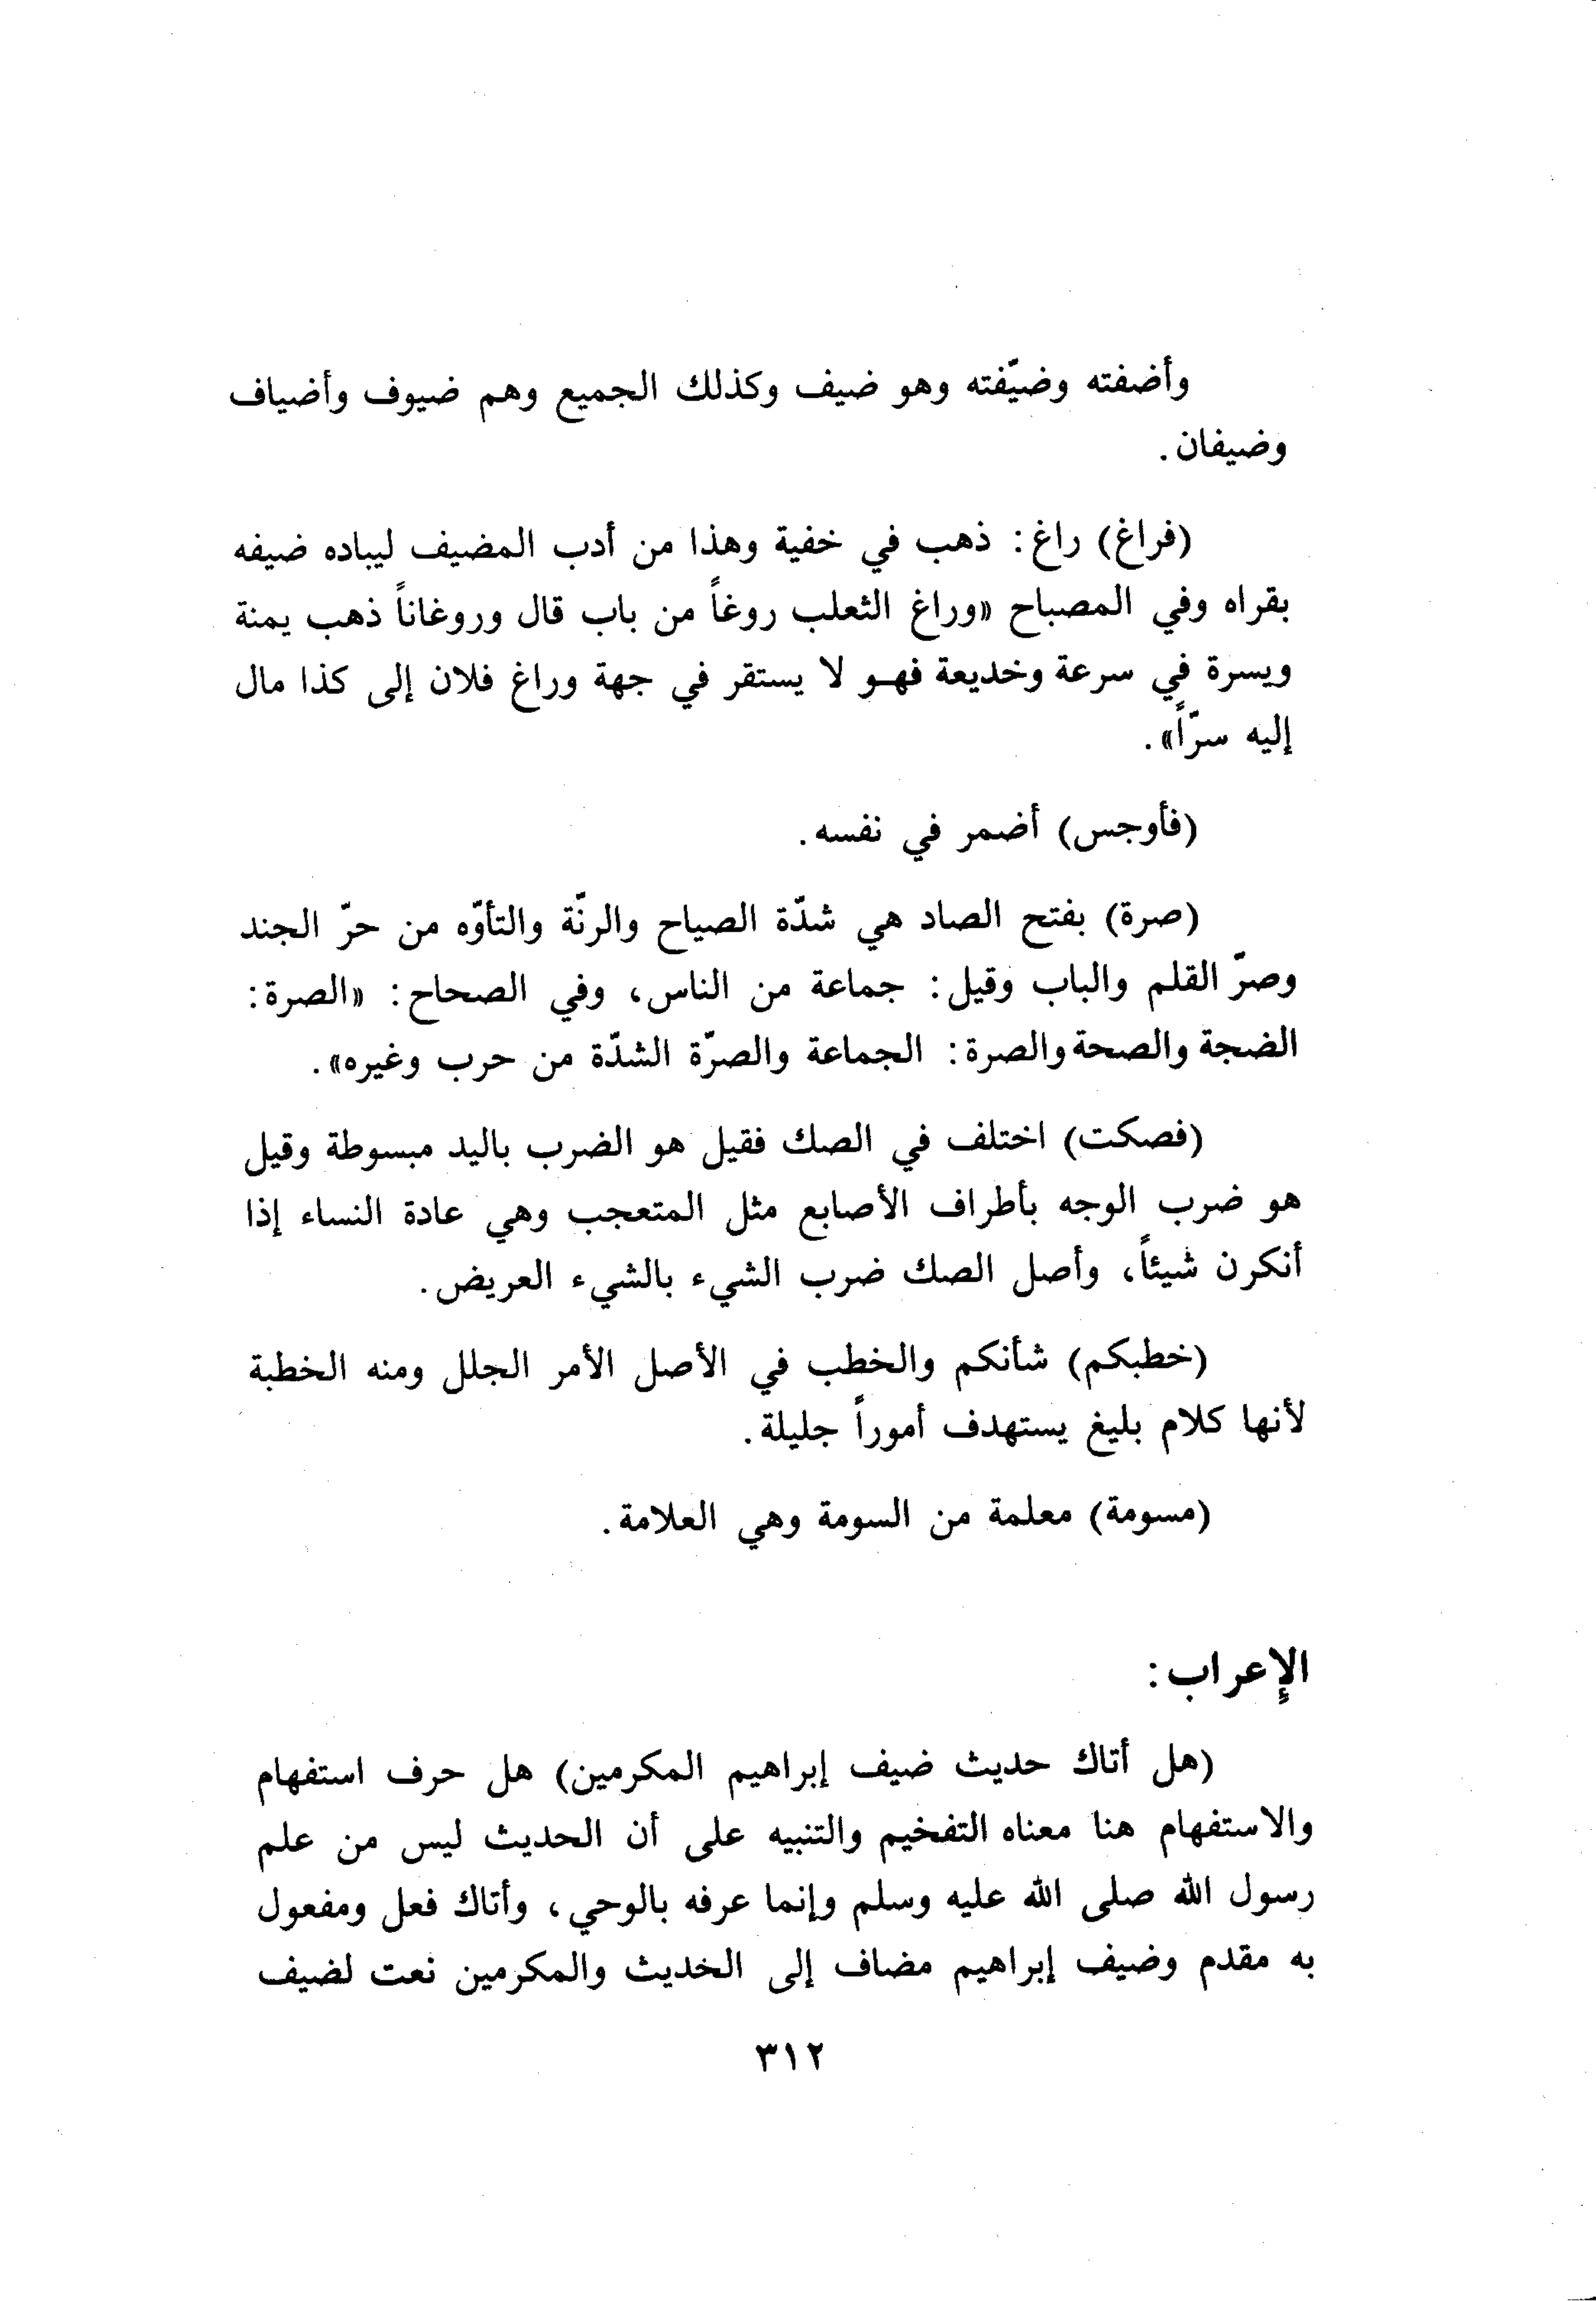 وأضفته وضيّفته وهو ضيف وكذلك الجميع وهم ضيوف وأضياف
وضيفان.
(فراغ) راغ: ذهب في خفية وهذا من أدب المضيف ليباده ضيفه
بقراه وفي المصباح «وراغ الثعلب روغاً من باب قال وروغاناً ذهب يمنة
ويسرة في سرعة وخديعة فهو لا يستقر في جهة وراغ فلان إلى كذا مال
إليه سرّاً».
(فأوجس) أضمر في نفسه.
(صرة) بفتح الصاد هي شدّة الصياح والرنّة والتأوّه من حرّ الجند
وصرّ القلم والباب وقيل: جماعة من الناس، وفي الصحاح: «الصرة:
الضجة والصحة والصرة: الجماعة والصرّة الشدّة من حرب وغيره».
(فصكت) اختلف في الصك فقيل هو الضرب باليد مبسوطة وقيل
هو ضرب الوجه بأطراف الأصابع مثل المتعجب وهي عادة النساء إذا
أنكرن شيئاً، وأصل الصك ضرب الشيء بالشيء العريض.
(خطبكم) شأنكم والخطب في الأصل الأمر الجلل ومنه الخطبة
لأنها كلام بليغ يستهدف أموراً جليلة.
(مسومة) معلمة من السومة وهي العلامة.
الإعراب:
(هل أتاك حديث ضيف إبراهيم المكرمين) هل حرف استفهام
والاستفهام هنا معناه التفخيم والتنبيه على أن الحديث ليس من علم
رسول الله صلى الله عليه وسلم وإنما عرفه بالوحي، وأتاك فعل ومفعول
به مقدم وضيف إبراهيم مضاف إلى الخديث والمكرمين نعت لضيف
٣١٢